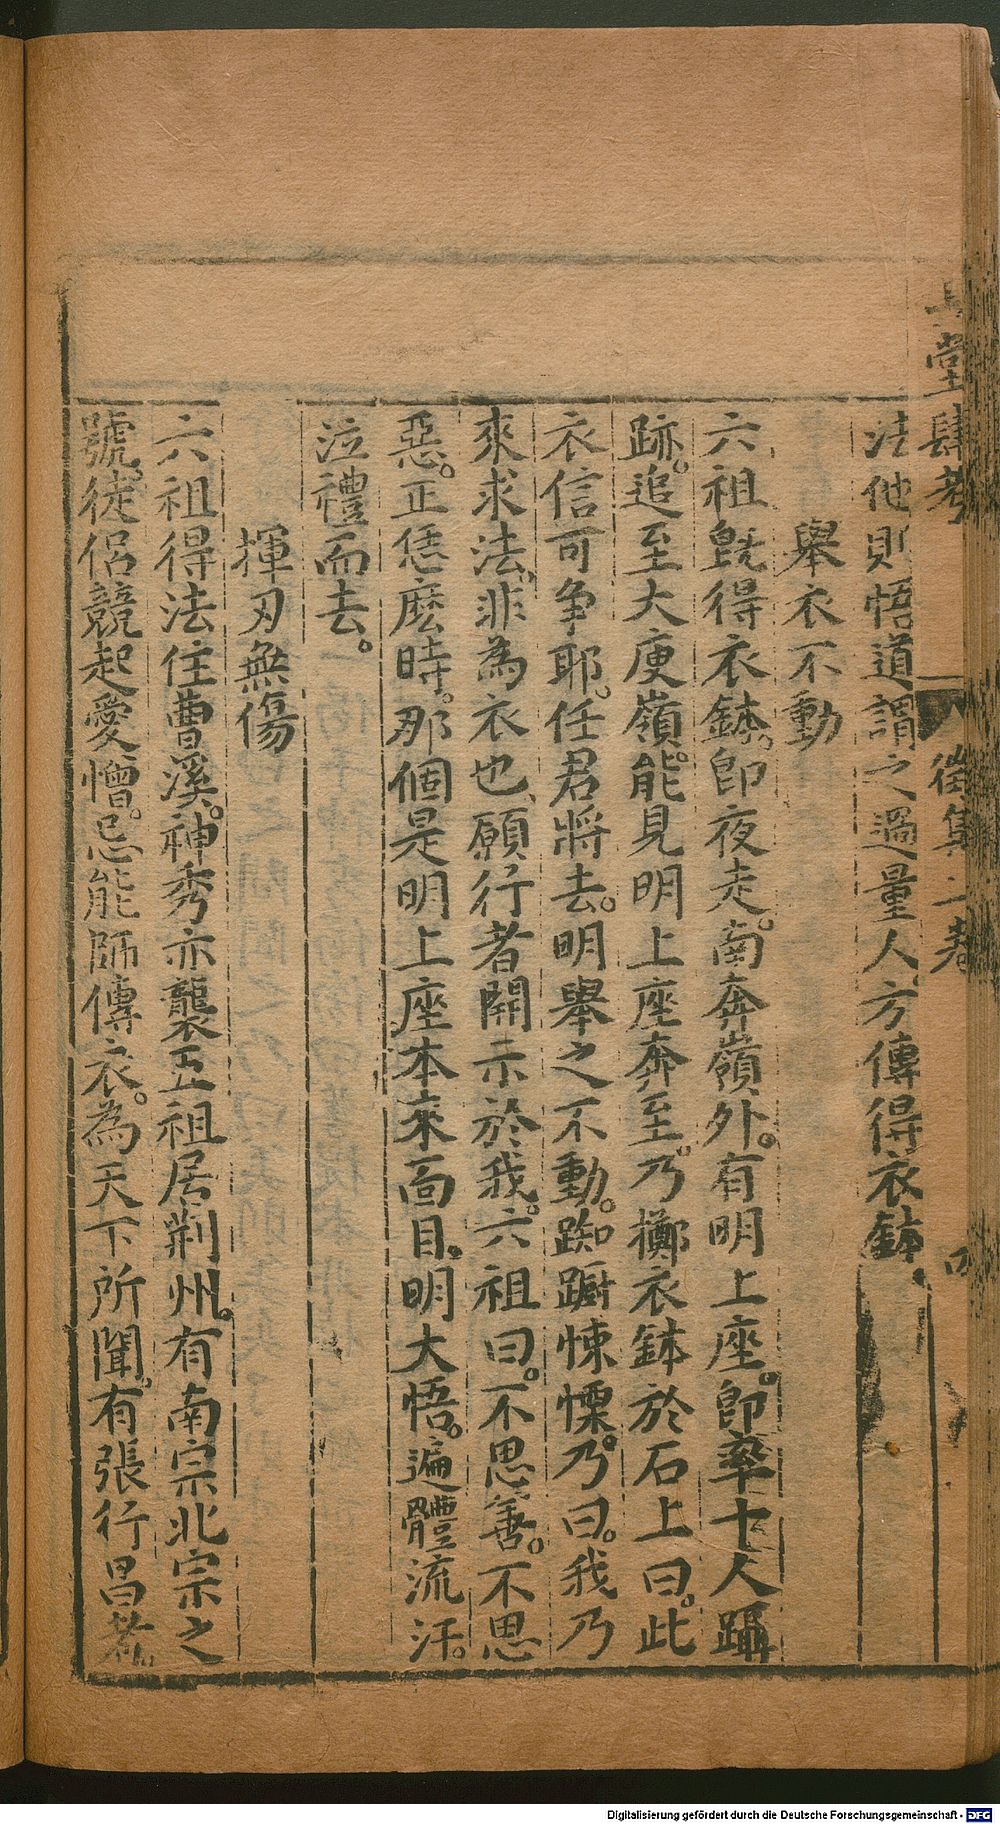 堂肆考 徵集二卷 四
法他則悟道謂之過量人方傳得衣鉢
舉衣不動
六祖旣得衣鉢。卽夜走。南奔嶺外。有明上座。卽率十人躡
跡。追至大庾嶺。能見明上座奔至。乃擲衣鉢於石上曰。此
衣信可爭耶。任君將去。明舉之不動。踟蹰悚慄。乃曰。我乃
來求法。非為衣也。願行者開示於我。六祖曰。不思善。不思
惡。正恁麽時。那個是明上座本來面目。明大悟。遍體流汗。
泣禮而去。
揮刃無傷
六祖得法住曹溪。神秀亦襲五祖居荆州。有南宗北宗之
號。徒侶競起愛憎。忌能師傳衣。為天下所聞。有張行昌者。
Digitalisierung gefördert durch die Deutsche Forschungsgemeinschaft - DFG